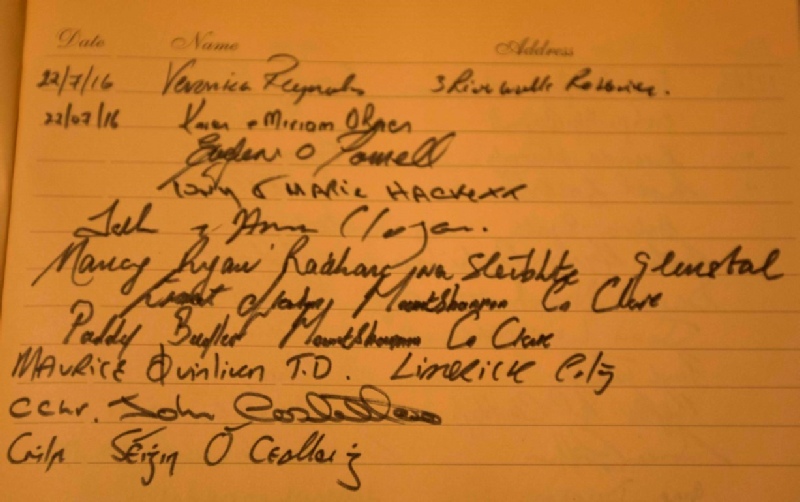 Date Name Address
22/7/16 Veronica Reynolds 3
22/07/16 + Miriam O'Brien
Eugene O Powell
Tony & MARIE HACKETT
& Ann
Nancy Ryan Radharc na Sleibhte Glenstal
Mountshannon Co Clare
Paddy Bugler Mountshannon Co Clare
MAURICE Quinlivan T.D. LIMERICK City
CCllr. John Costelloe
Séigin Ó Ceallaig